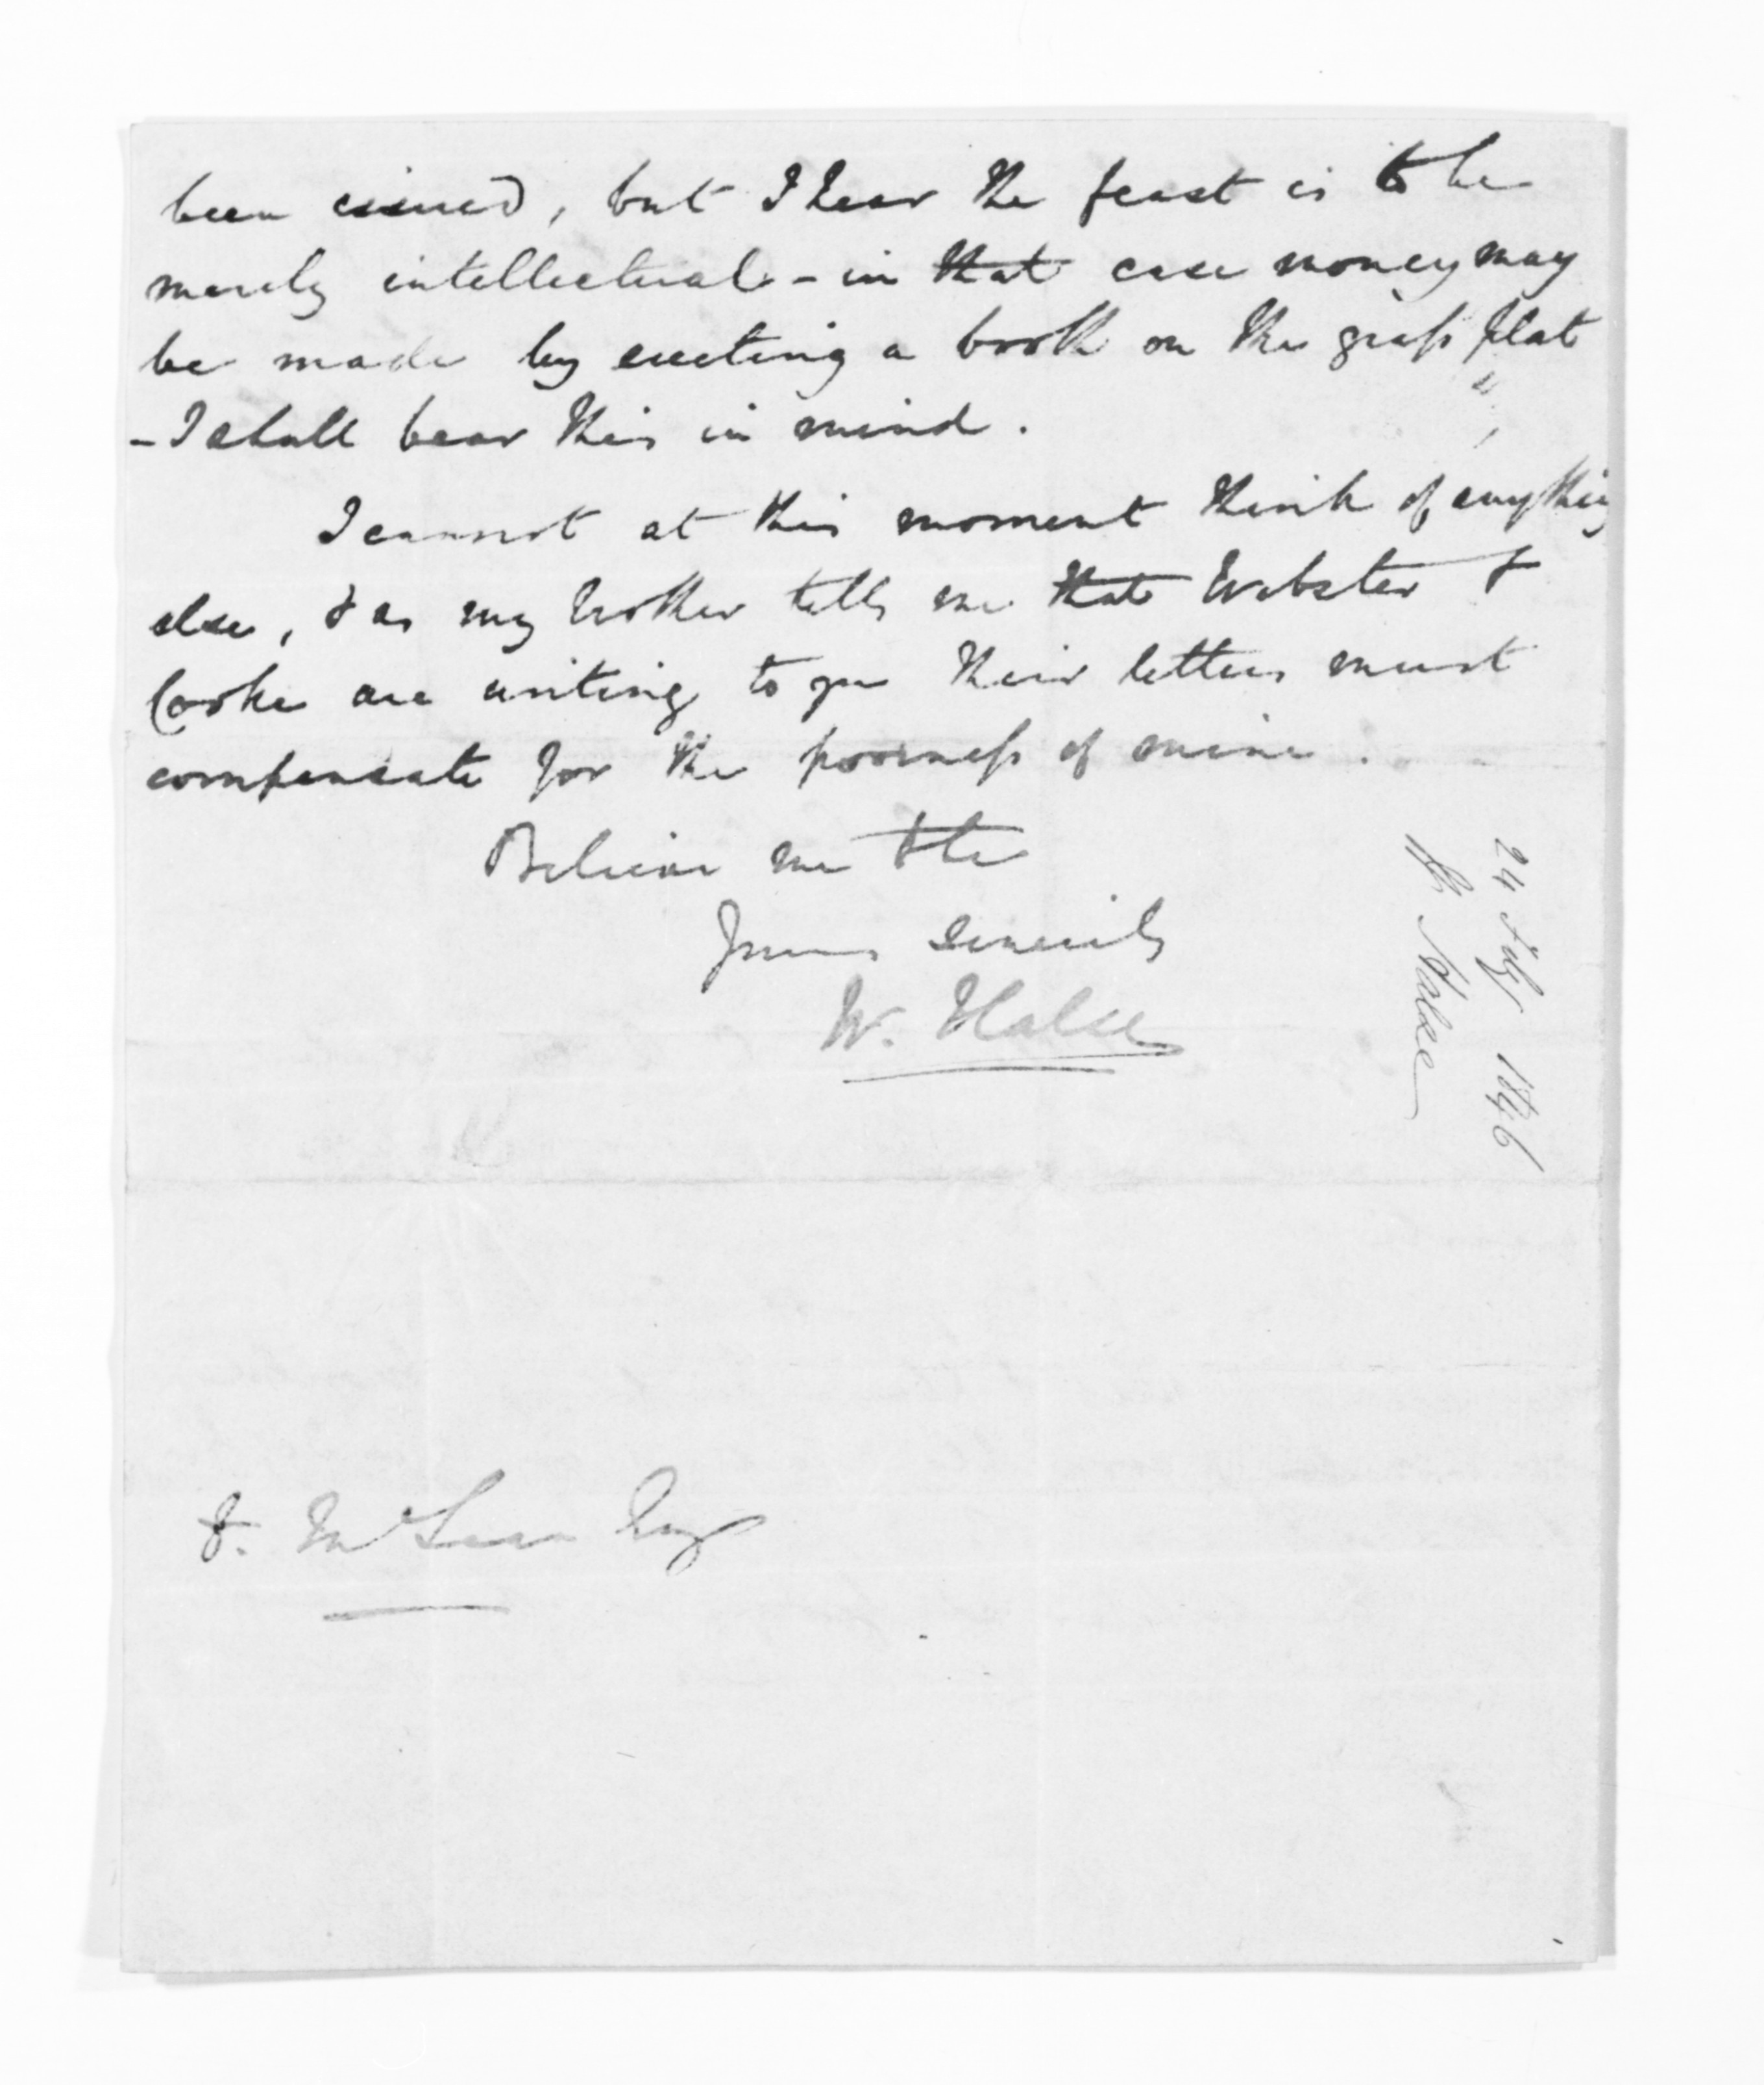 been issued, but I hear the feast is to be
merely intellectual - in that case money may
be made by erecting a booth on the grass flat
- I shall bear this in mind.
I cannot at this moment think of anything
else, & as my brother tells me that Webster &
Cooke are writing to you their letters must
compensate for the poorness of mine.
Believe me &tc
Yours sincerely
W. Halse
24 July 1846
W. Halse
D. McLean Esq